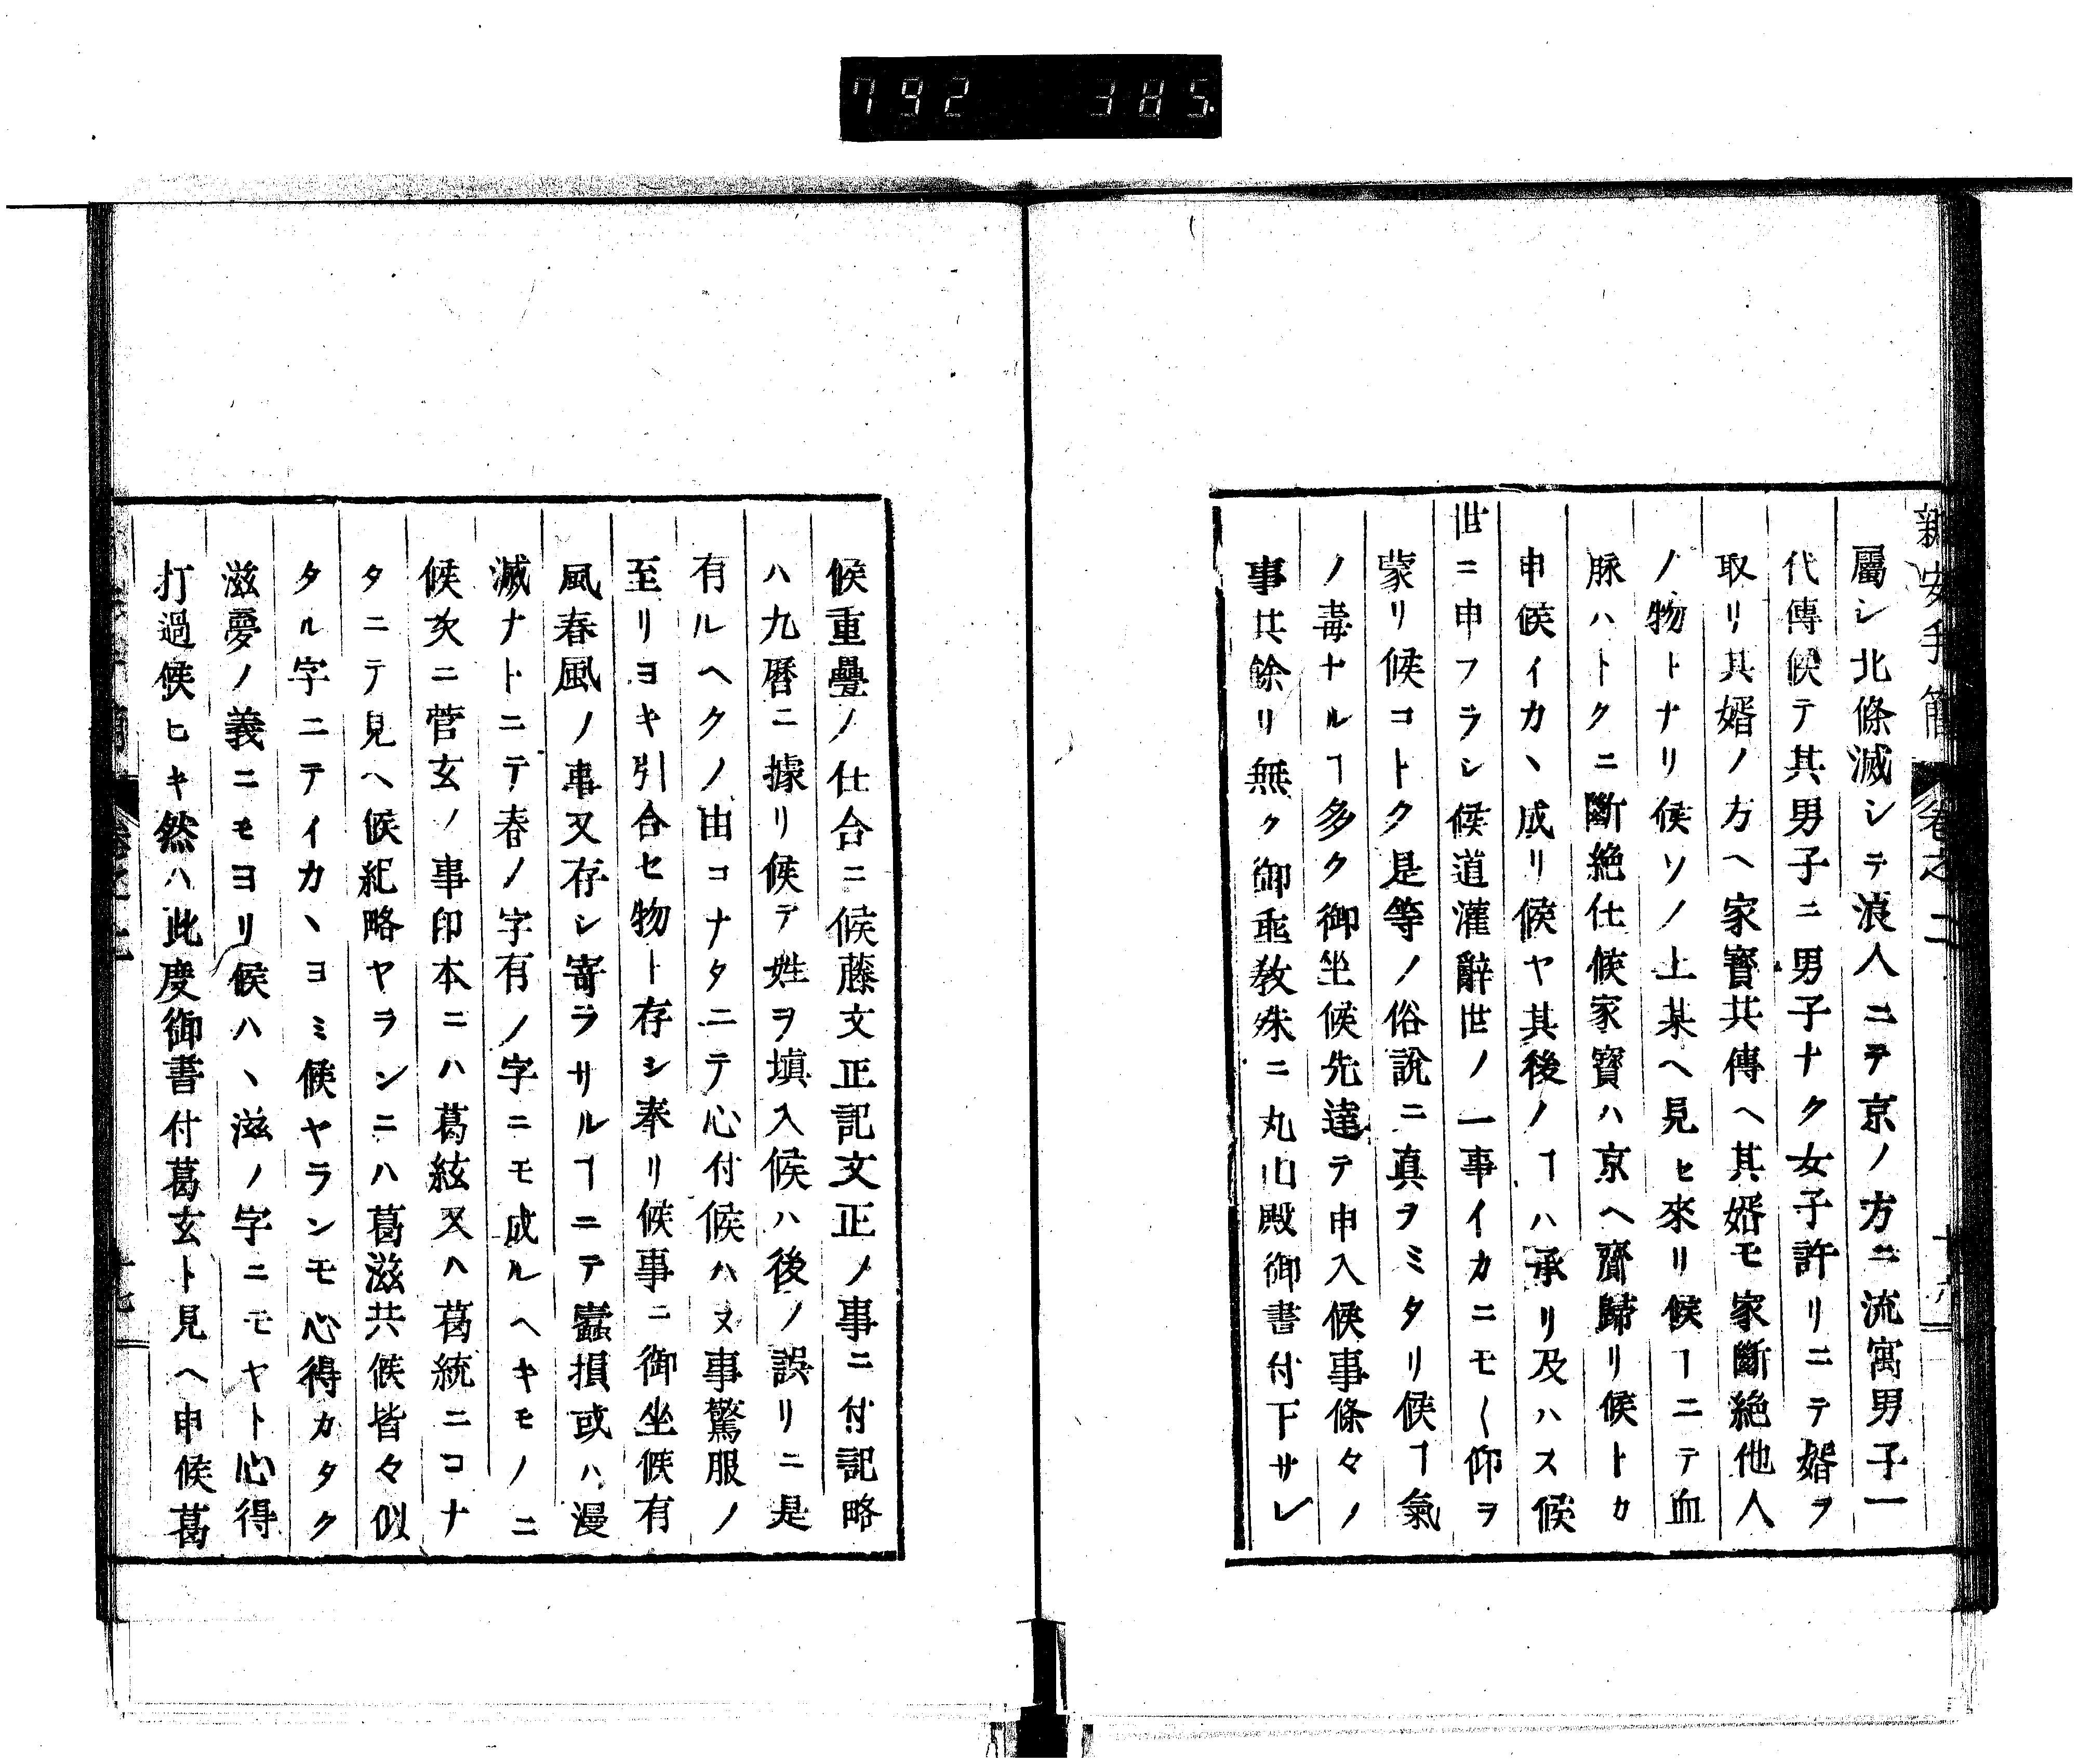 792 385
新安手簡 卷之二 十八
屬シ北條滅シテ浪人ニテ京ノ方ニ流寓男子一
代傳候テ其男子ニ男子ナク女子許リニテ婿ヲ
取リ其婿ノ方ヘ家寳共傳ヘ其婿モ家斷絶他人
ノ物トナリ候ソノ上某ヘ見セ來リ候ヿニテ血
脉ハトクニ斷絶仕候家寳ハ京ヘ齎歸リ候トカ
申候イカヽ成リ候ヤ其後ノヿハ承リ及ハス候
世ニ申フラシ候道灌辭世ノ一事イカニモ〱仰ヲ
蒙リ候コトク是等ノ俗說ニ真ヲミタリ候ヿ氣
ノ毒ナルヿ多ク御坐候先達テ申入候事條々ノ
事其餘リ無ク御垂敎殊ニ丸山殿御書付下サレ
候重疊ノ仕合ニ候藤文正記文正ノ事ニ付記略
ハ九曆ニ據リ候テ姓ヲ填入候ハ後ノ誤リニ是
有ルヘクノ由コナタニテ心付候ハヌ事驚服ノ
至リヨキ引合セ物ト存シ奉リ候事ニ御坐候有
風春風ノ事又存シ寄ラサルヿニテ蠧損或ハ漫
滅ナトニテ春ノ字有ノ字ニモ成ルヘキモノニ
候次ニ菅玄ノ事印本ニハ葛絃又ハ葛統ニコナ
タニテ見ヘ候紀略ヤランニハ葛滋共候皆々似
タル字ニテイカヽヨミ候ヤランモ心得カタク
滋夢ノ義ニモヨリ候ハヽ滋ノ字ニモヤト心得
打過候ヒキ然ハ此度御書付葛玄ト見ヘ申候葛